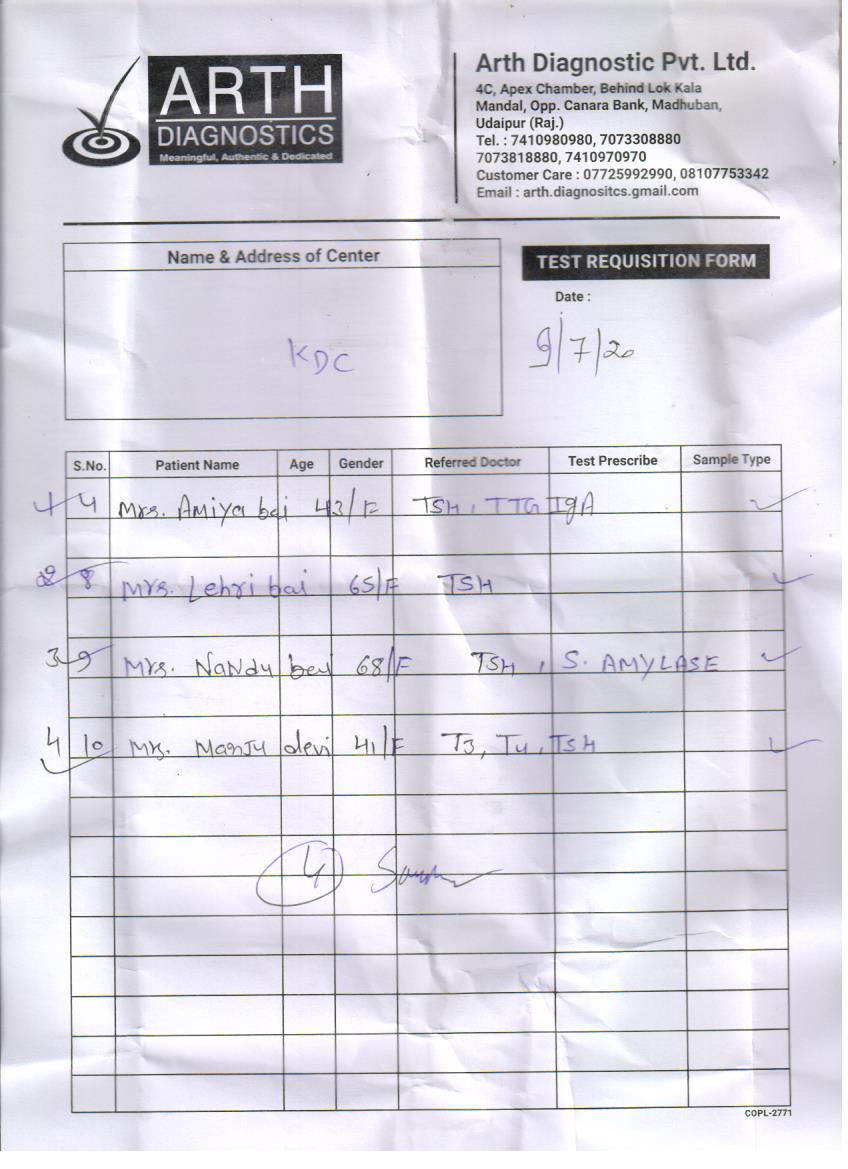 ARTH
DIAGNOSTICS
Meaningful, Authentic & Dedicated
Arth Diagnostic Pvt. Ltd.
4C, Apex Chamber, Behind Lok Kala
Mandal, Opp. Canara Bank, Madhuban,
Udaipur (Raj.)
Tel. : 7410980980, 7073308880
7073818880, 7410970970
Customer Care : 07725992990, 08107753342
Email : arth.diagnositcs.gmail.com
Name & Address of Center
KDC
TEST REQUISITION FORM
Date :
9/7/20
S.No. Patient Name Age Gender Referred Doctor Test Prescribe Sample Type
4 Mrs. Amiya bai 43/F TSH, TTG IgA
2 8 Mrs. Lehri bai 65/F TSH
3 9 Mrs. Nandu 68/F TSH, S. AMYLASE
4 10 Mrs. Manju devi 41/F T3, T4, TSH
4
COPL-2771